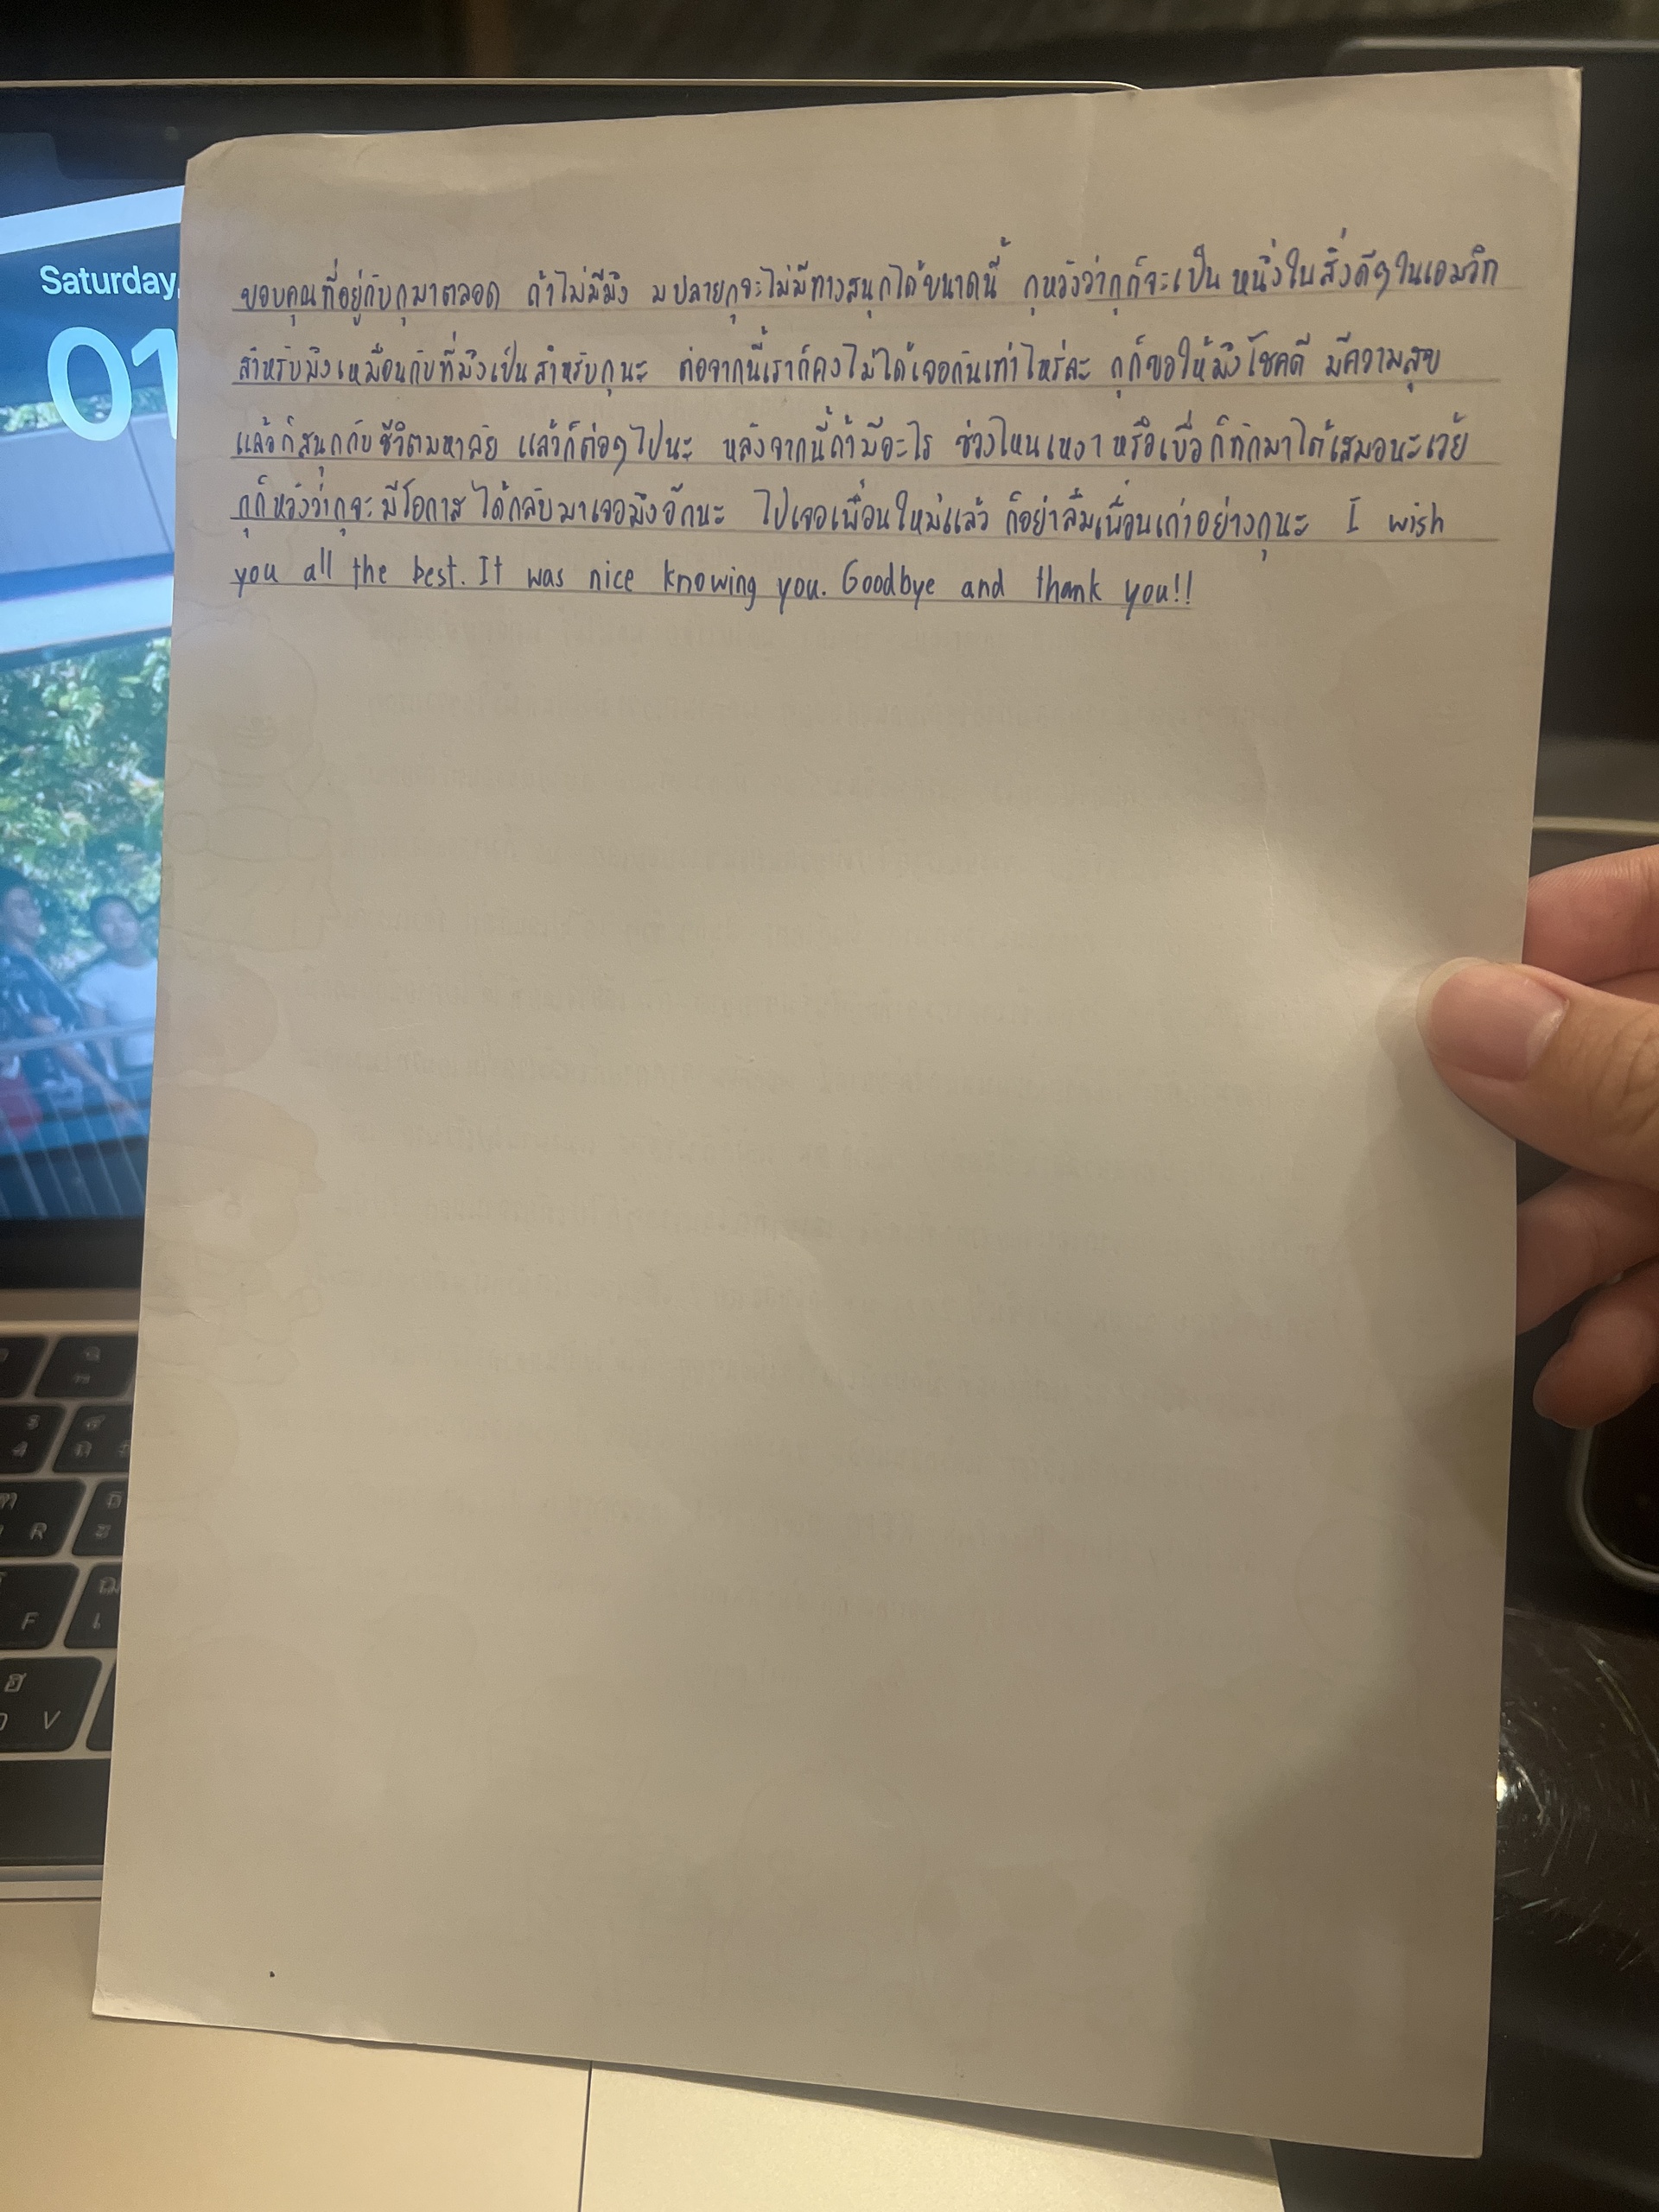 Saturday,
01
ขอบคุณที่อยู่กับกูมาตลอด ถ้าไม่มีมึง มปลายกูจะไม่มีทางสนุกได้ขนาดนี้ กูหวังว่ากูก็จะเป็น หนึ่งในสิ่งดีๆในเอมวิท
สำหรับมึงเหมือนกับที่มึงเป็นสำหรับกูนะ ต่อจากนี้เราก็คงไม่ได้เจอกันเท่าไหร่ละ กูก็ขอให้มึงโชคดี มีความสุข
แล้วก็สนุกกับชีวิตมหาลัย แล้วก็ต่อๆไปนะ หลังจากนี้ถ้ามีอะไร ช่วงไหนเหงาหรือเบื่อก็ทักมาได้เสมอนะเว้ย
กูก็หวังว่ากูจะมีโอกาสได้กลับมาเจอมึงอีกนะ ไปเจอเพื่อนใหม่แล้ว ก็อย่าลืมเพื่อนเก่าอย่างกูนะ I wish
you all the best. It was nice knowing you. Goodbye and thank you!!
R
F
V